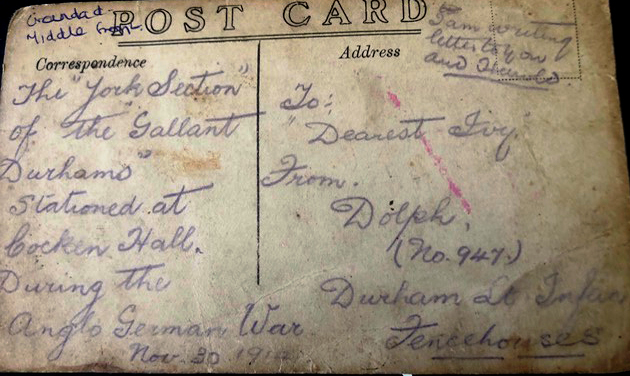 Grandad
Middle
POST CARD
I am writing
letter to you
and
Correspondence
Address
The "York Section"
of the "Gallant
Durhams"
Stationed at
Cocken Hall.
During the
Anglo German War
Nov. 30
To:
"Dearest Ivy"
From.
Dolph.
(No. 947.)
Durham Lt
Fencehouses